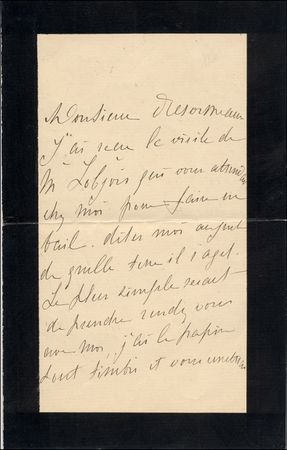 Monsieur Desormeaux
J'ai reçu la visite de
M Lobjois qui vous
chez moi pour faire un
bail. dites moi
de quelle terre il s'agit.
Le plus simple serait
de prendre rendez vous
avec moi, j'ai le papier
tout timbré et vous